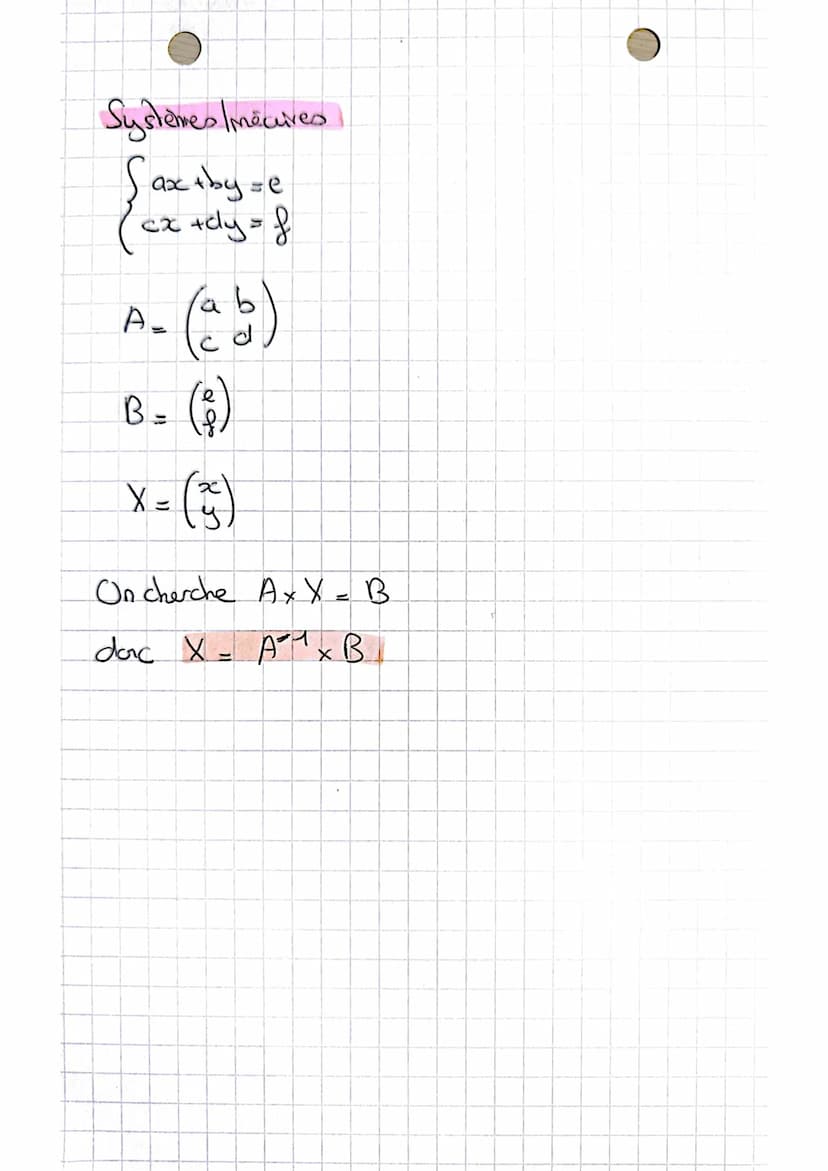 Systèmes linéaires
{ ax + by = e
cx + dy = f
A = (a b
c d)
B = (e
f)
X = (x
y)
On cherche A × X = B
donc X = A⁻¹ × B